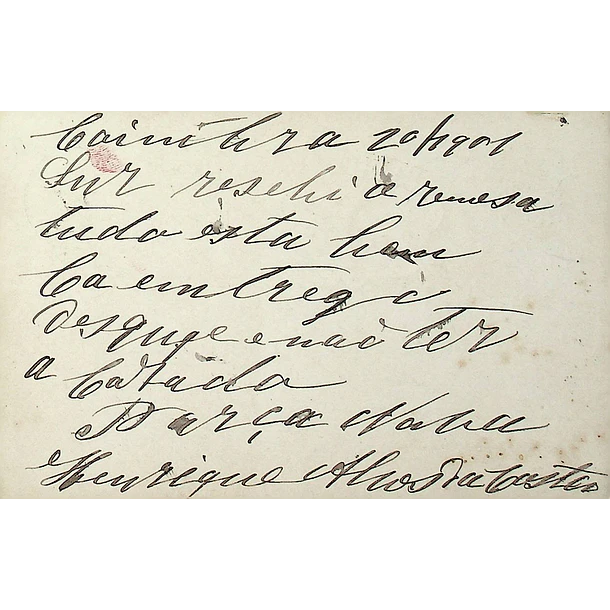 Coimbra 20/1901
Snr resebi a remesa
tudo esta bom
Ca emtrego
desqupe e nao ter
a Cusado
Parça Nova
Henrique Alves da Costa